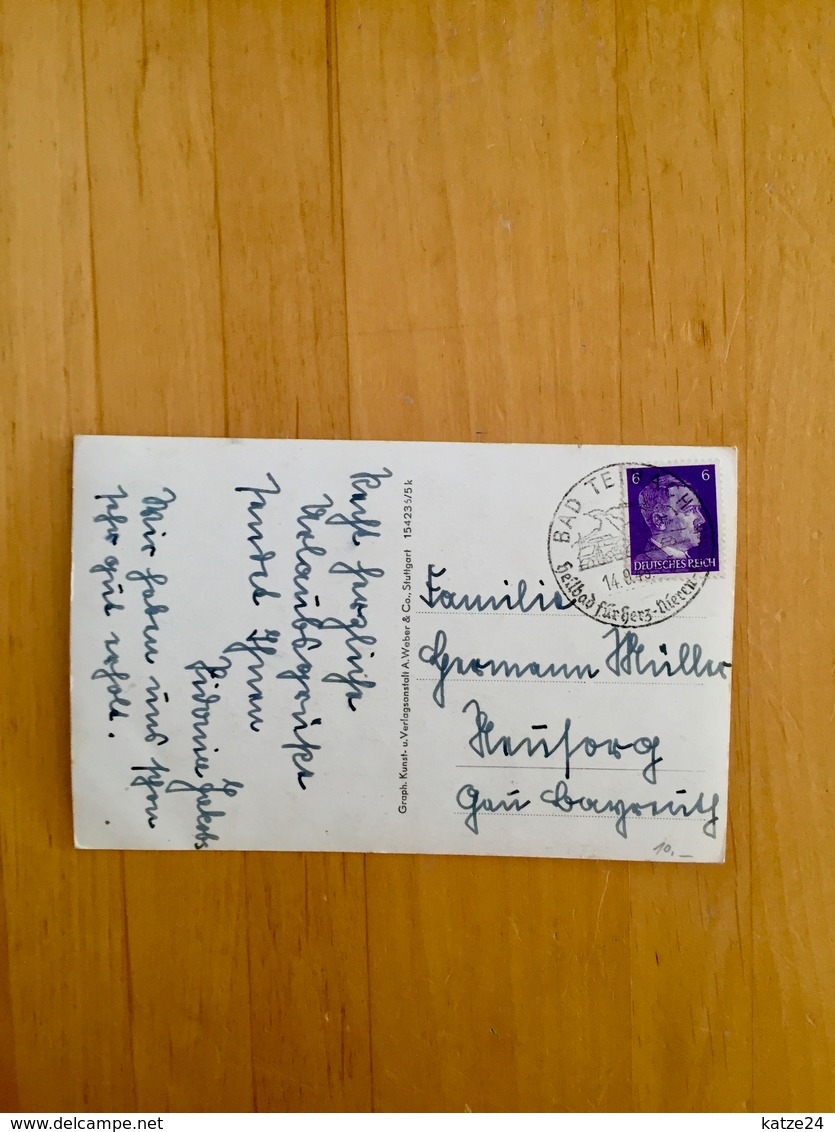 Recht herzliche
Urlaubsgrüße
sendet Ihnen
Sidonie Jakobs
Wir haben uns schon
sehr gut erholt.
Graph. Kunst- u. Verlagsanstalt A. Weber & Co., Stuttgart 15423
BAD TEINACH
14.8.
Heilbad für Herz-Nieren-
6 6
DEUTSCHES REICH
Familie
Hermann Müller
Neusorg
Gau Bayreuth
10.–
katze24
DELCAMPE.NET